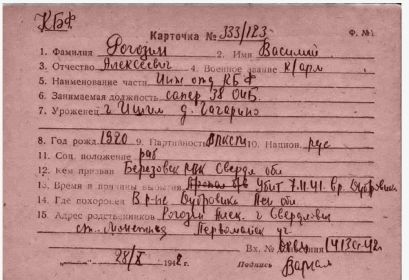 КБФ
Карточка № 333/123 Ф. №1
1. Фамилия Рогозин 2. Имя Василий
3. Отчество Алексеевич 4. Военное звание к/арм
5. Наименование части Инж отд КБФ
6. Занимаемая должность сапер 38 ОИБ
7. Уроженец г Ишим д. Гагарино
8. Год рожд 1920 9. Партийность ВЛКСМ 10. Национ. рус
11. Соц. положение раб
12. Кем призван Березовск РВК Свердл обл
13. Время и причины выбытия Убит 7.11.41. вр. Дубровки
14. Где похоронен В р-не Дубровки Лен обл
15. Адрес родственников Рогозин Алек. г Свердловск
ст. Монетная Первомайск ул
Вх. №
28/X 194 г. Подпись